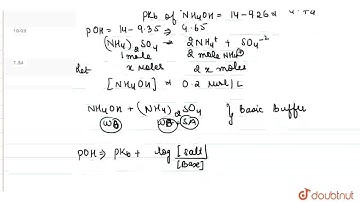 PKb of NH4OH = 14-9.26 = 4.74
POH = 14-9.35 ⇒ 4.65
(NH4)2SO4 ⇒ 2NH4+ + SO4-2
1 mole 2 mole NH4+
Let x moles 2x moles
[NH4OH] = 0.2 mol/L
NH4OH + (NH4)2SO4 } basic buffer
WB WB+SA
POH ⇒ PKb + log [salt]/[Base]
doubtnut